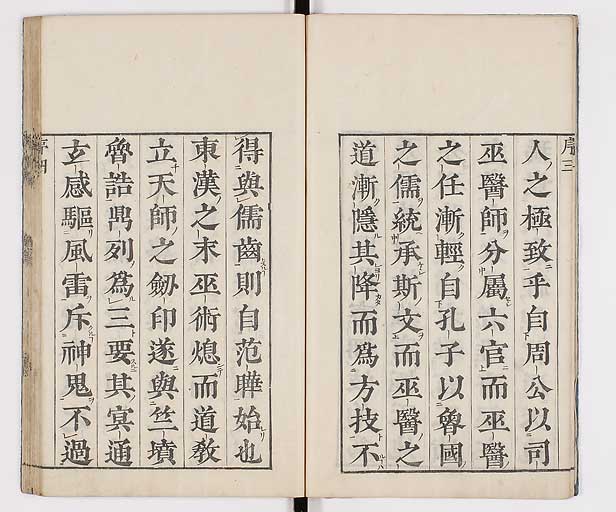 序三
人之極致乎自周公以司
巫醫師分屬六官而巫醫
之任漸輕自孔子以魯國
之儒統承斯文而巫醫之
道漸隱其降而爲方技不
得與儒齒則自范曄始也
東漢之末巫術熄而道教
立天師之劒印遂與竺墳
魯誥鼎列爲三要其冥通
玄感驅風雷斥神鬼不過
序四